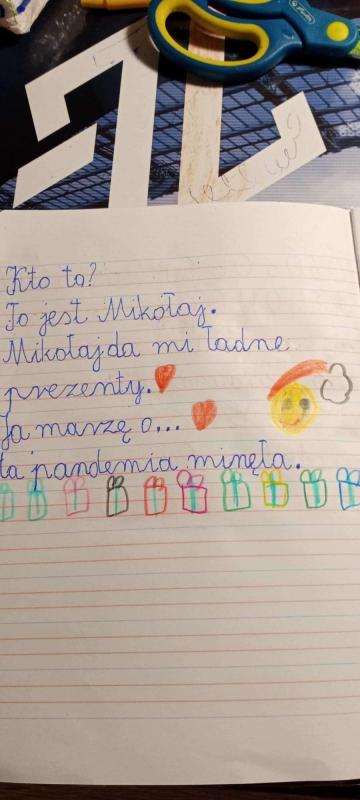 Kto to?
To jest Mikołaj.
Mikołaj da mi ładne
prezenty.
Ja marzę o...
ta pandemia minęła.